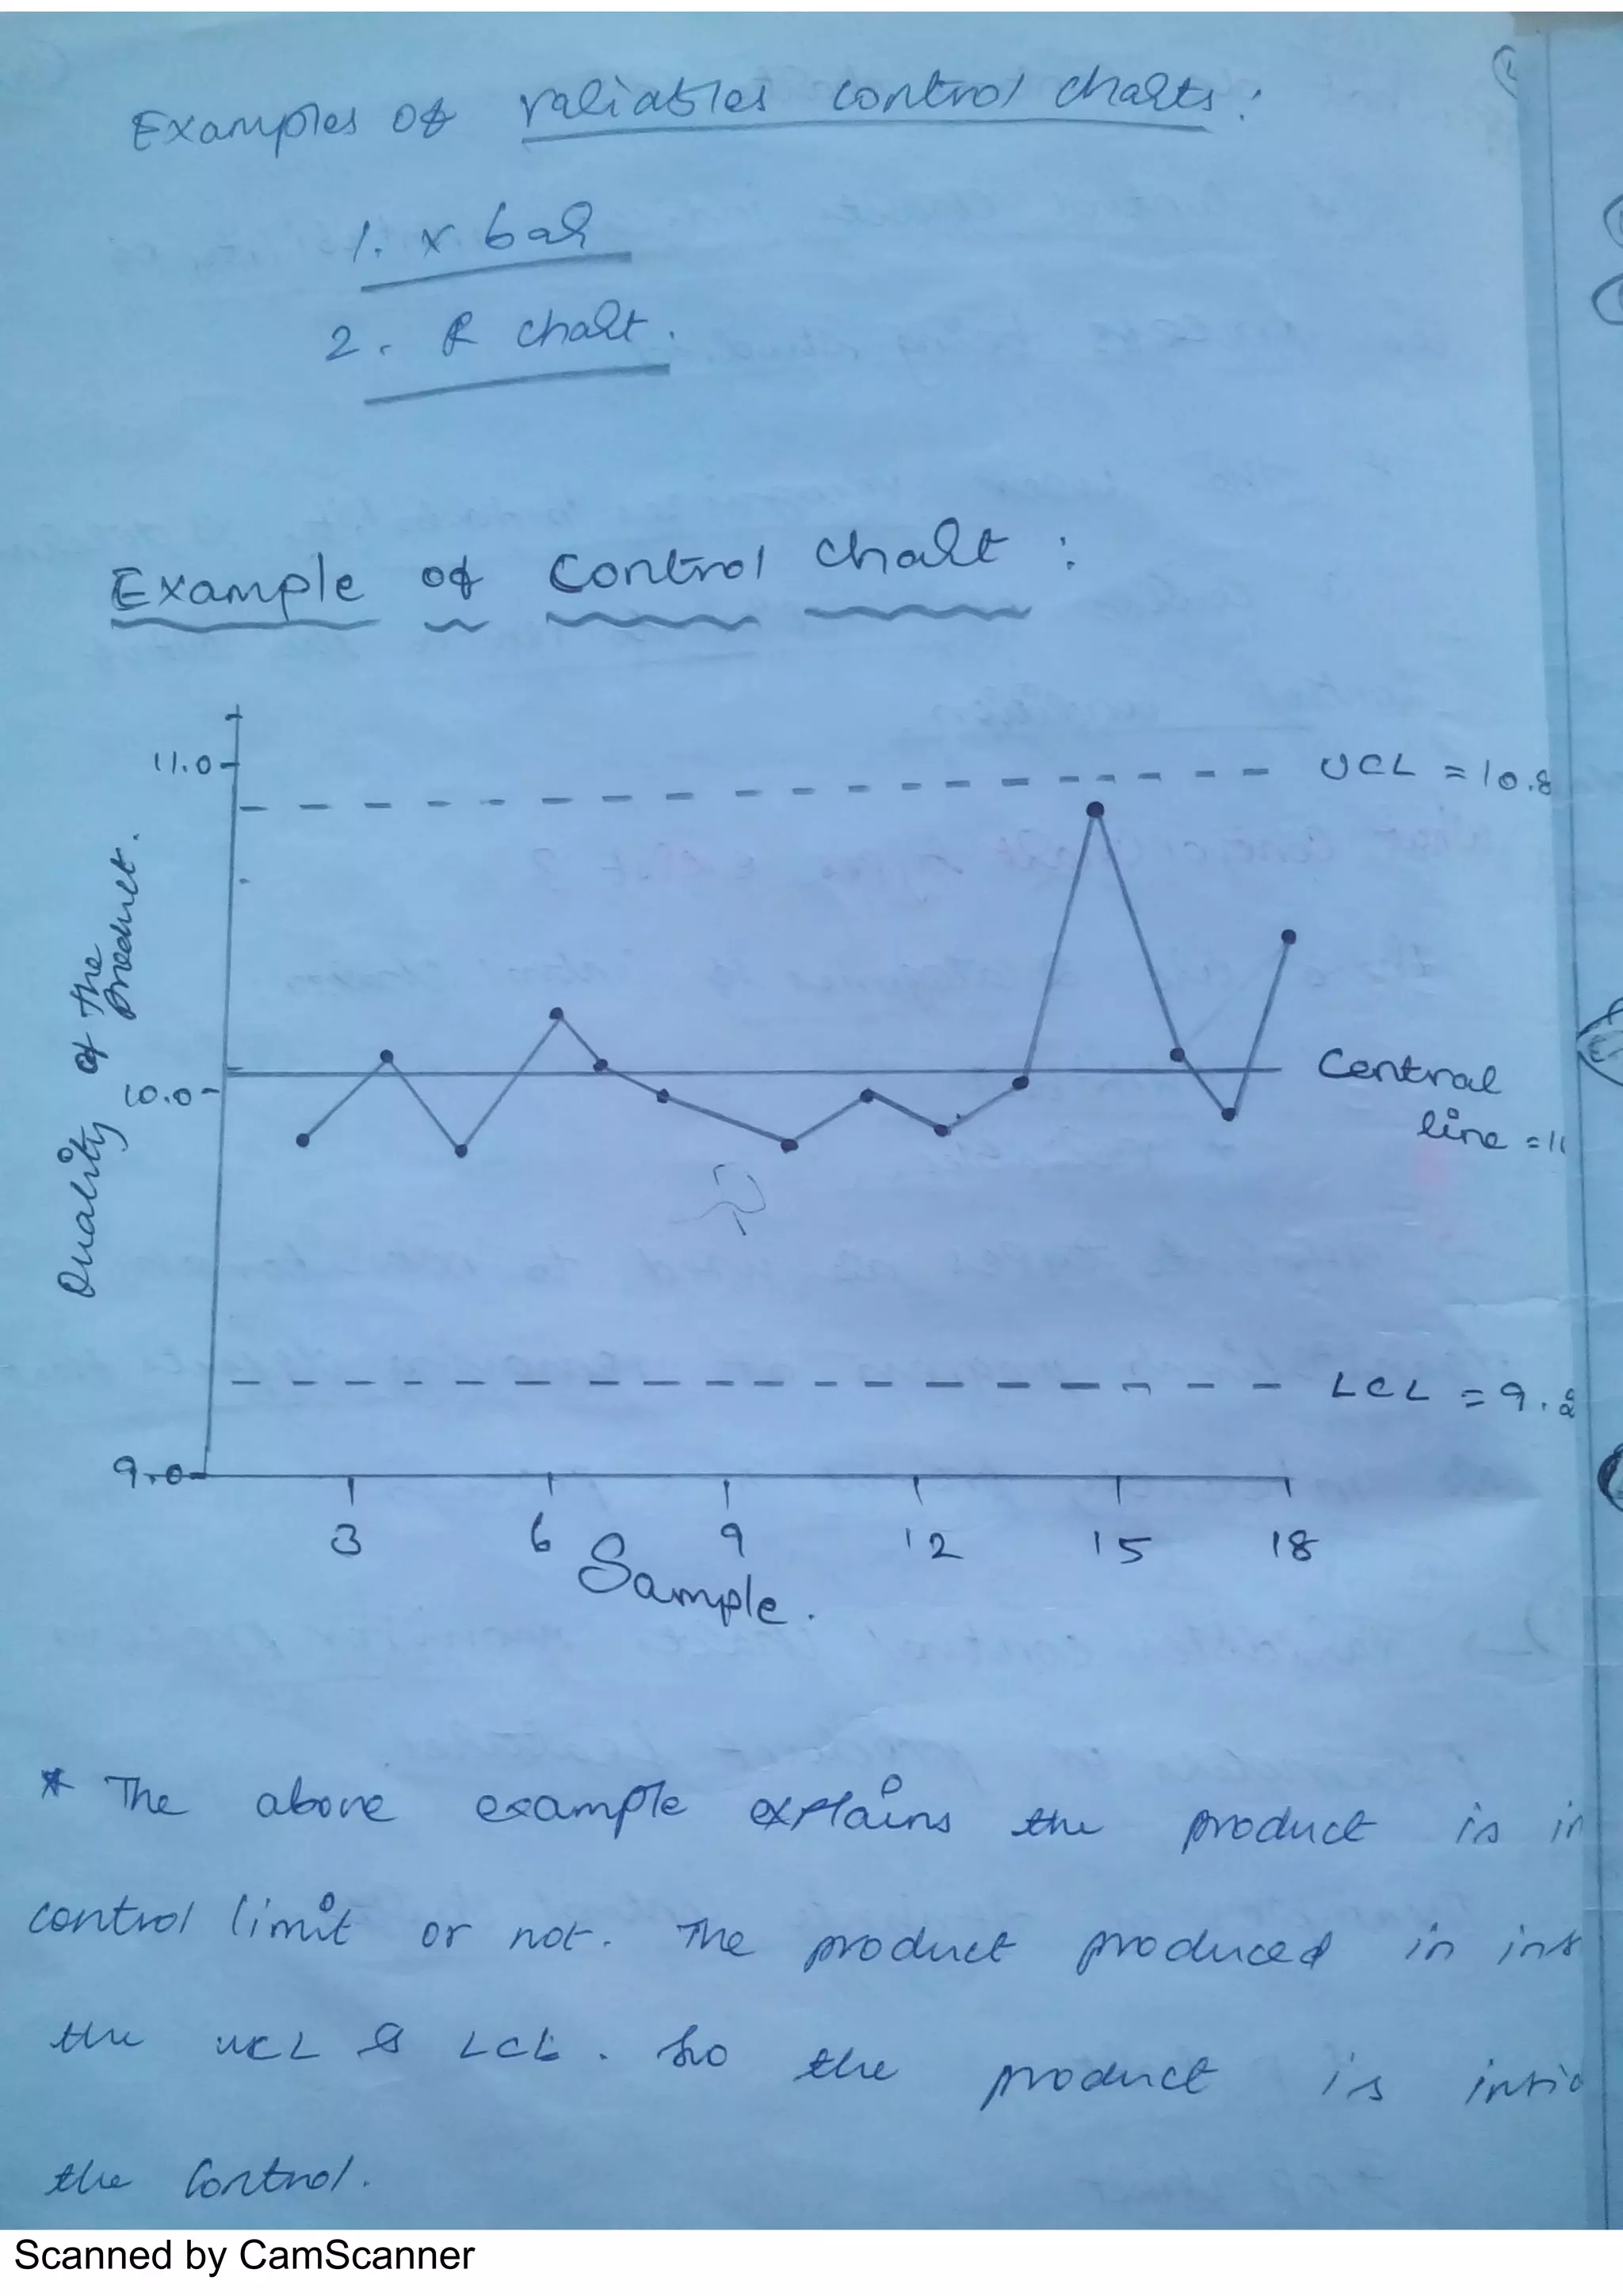 Examples of variables control charts :
1. x bar
2. R chart.
Example of Control Chart :
11.0
UCL = 10.8
Quality of the product.
10.0
Central
line = 1
LCL = 9.2
9.0
3 6 9 12 15 18
Sample.
* The above example explains the product is in
control limit or not. The product produced in ins
the UCL & LCL . So the product is insid
the Control.
Scanned by CamScanner